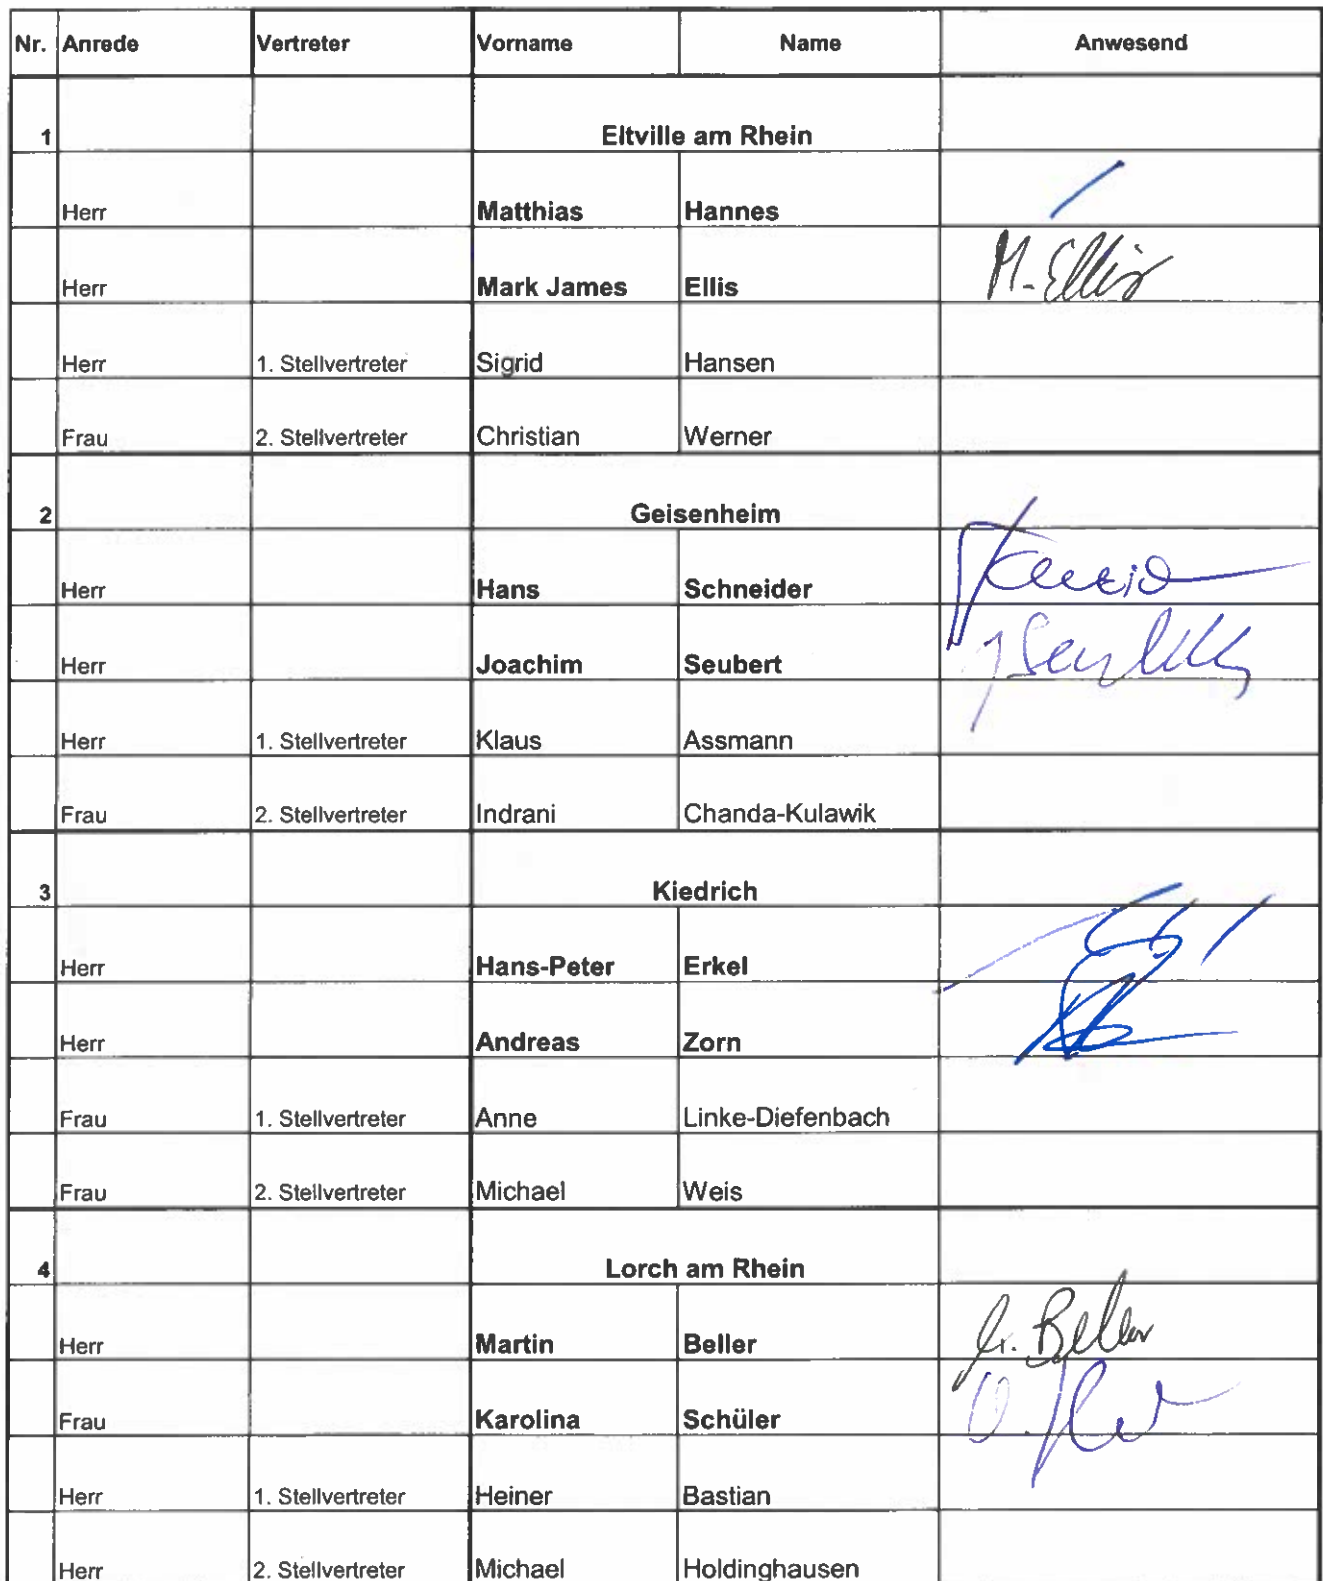 Nr. Anrede Vertreter Vorname Name Anwesend
1 Eltville am Rhein
Herr Matthias Hannes
Herr Mark James Ellis M. Ellis
Herr 1. Stellvertreter Sigrid Hansen
Frau 2. Stellvertreter Christian Werner
2 Geisenheim
Herr Hans Schneider
Herr Joachim Seubert
Herr 1. Stellvertreter Klaus Assmann
Frau 2. Stellvertreter Indrani Chanda-Kulawik
3 Kiedrich
Herr Hans-Peter Erkel
Herr Andreas Zorn
Frau 1. Stellvertreter Anne Linke-Diefenbach
Frau 2. Stellvertreter Michael Weis
4 Lorch am Rhein
Herr Martin Beller Beller
Frau Karolina Schüler
Herr 1. Stellvertreter Heiner Bastian
Herr 2. Stellvertreter Michael Holdinghausen